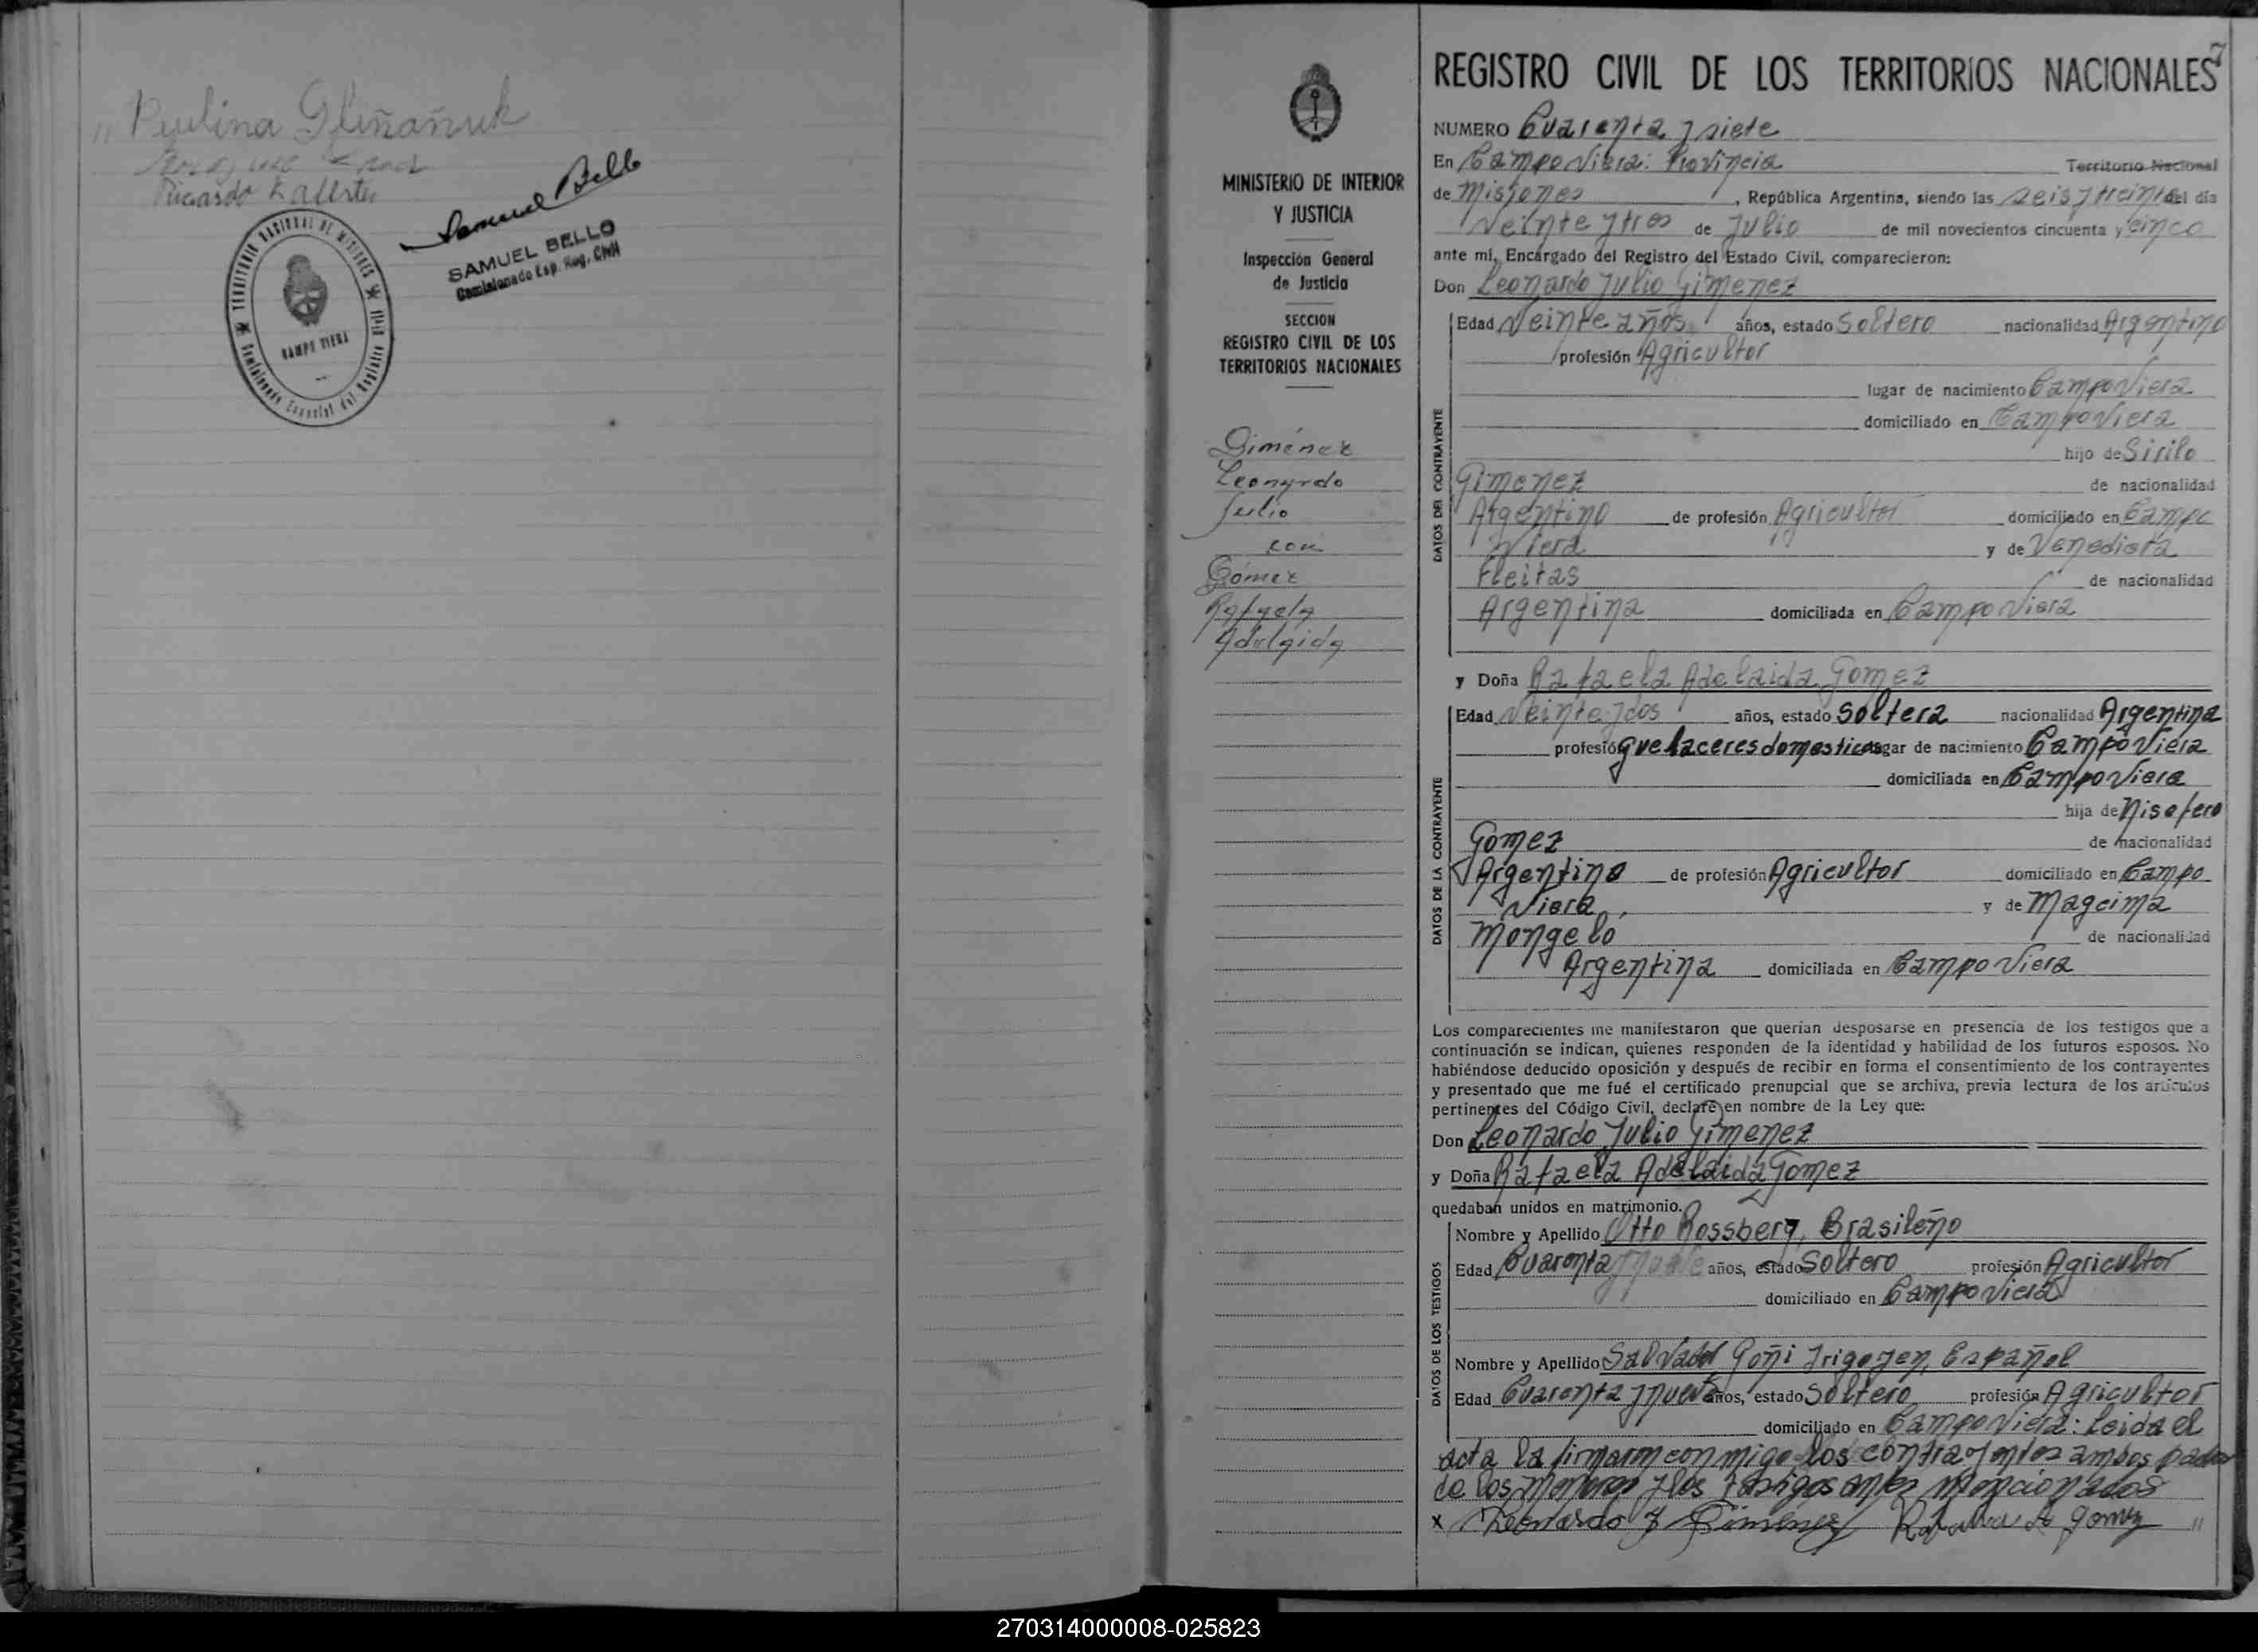 " Paulina Gliñañuk
Ricardo Kallsten
Samuel Bello
SAMUEL BELLO
Comisionado Esp. Reg. Civil
TERRITORIO NACIONAL DE MISIONES
CAMPO VIERA
Comisionado Especial del Registro Civil
MINISTERIO DE INTERIOR
Y JUSTICIA
Inspección General
de Justicia
SECCION
REGISTRO CIVIL DE LOS
TERRITORIOS NACIONALES
Giménez
Leonardo
Julio
con
Gómez
Rafaela
Adelaida
7
REGISTRO CIVIL DE LOS TERRITORIOS NACIONALES
NUMERO Cuarenta y siete
En Campo Viera: Provincia Territorio Nacional
de Misiones, República Argentina, siendo las seis y treinta del día
Veinte y tres de Julio de mil novecientos cincuenta y cinco
ante mi, Encargado del Registro del Estado Civil, comparecieron:
Don Leonardo Julio Gimenez
DATOS DEL CONTRAYENTE
Edad Veinte años años, estado Soltero nacionalidad Argentino
profesión Agricultor
lugar de nacimiento Campo Viera
domiciliado en Campo Viera
hijo de Sirilo
Gimenez de nacionalidad
Argentino de profesión Agricultor domiciliado en Campo
Viera y de Venedicta
Fleitas de nacionalidad
Argentina domiciliada en Campo Viera
y Doña Rafaela Adelaida Gomez
DATOS DE LA CONTRAYENTE
Edad Veinte y dos años, estado Soltera nacionalidad Argentina
profesión quehaceres domesticos lugar de nacimiento Campo Viera
domiciliada en Campo Viera
hija de Nisefero
Gomez de nacionalidad
Argentino de profesión Agricultor domiciliado en Campo
Viera, y de Magcima
Mongelo de nacionalidad
Argentina domiciliada en Campo Viera
Los comparecientes me manifestaron que querían desposarse en presencia de los testigos que a
continuación se indican, quienes responden de la identidad y habilidad de los futuros esposos. No
habiéndose deducido oposición y después de recibir en forma el consentimiento de los contrayentes
y presentado que me fué el certificado prenupcial que se archiva, previa lectura de los artículos
pertinentes del Código Civil, declaré en nombre de la Ley que:
Don Leonardo Julio Gimenez
y Doña Rafaela Adelaida Gomez
quedaban unidos en matrimonio.
DATOS DE LOS TESTIGOS
Nombre y Apellido Otto Rossberg, Brasileño
Edad Cuarenta y nueve años, estado Soltero profesión Agricultor
domiciliado en Campo Viera
Nombre y Apellido Salvador Goñi Irigoyen, Español
Edad Cuarenta y nueve años, estado Soltero profesión Agricultor
domiciliado en Campo Viera: Leida el
acta la firmaron conmigo los contrayentes ambos padres
de los menores y los testigos antes mencionados
x Leonardo J Gimenez Rafaela A Gomez "
270314000008-025823